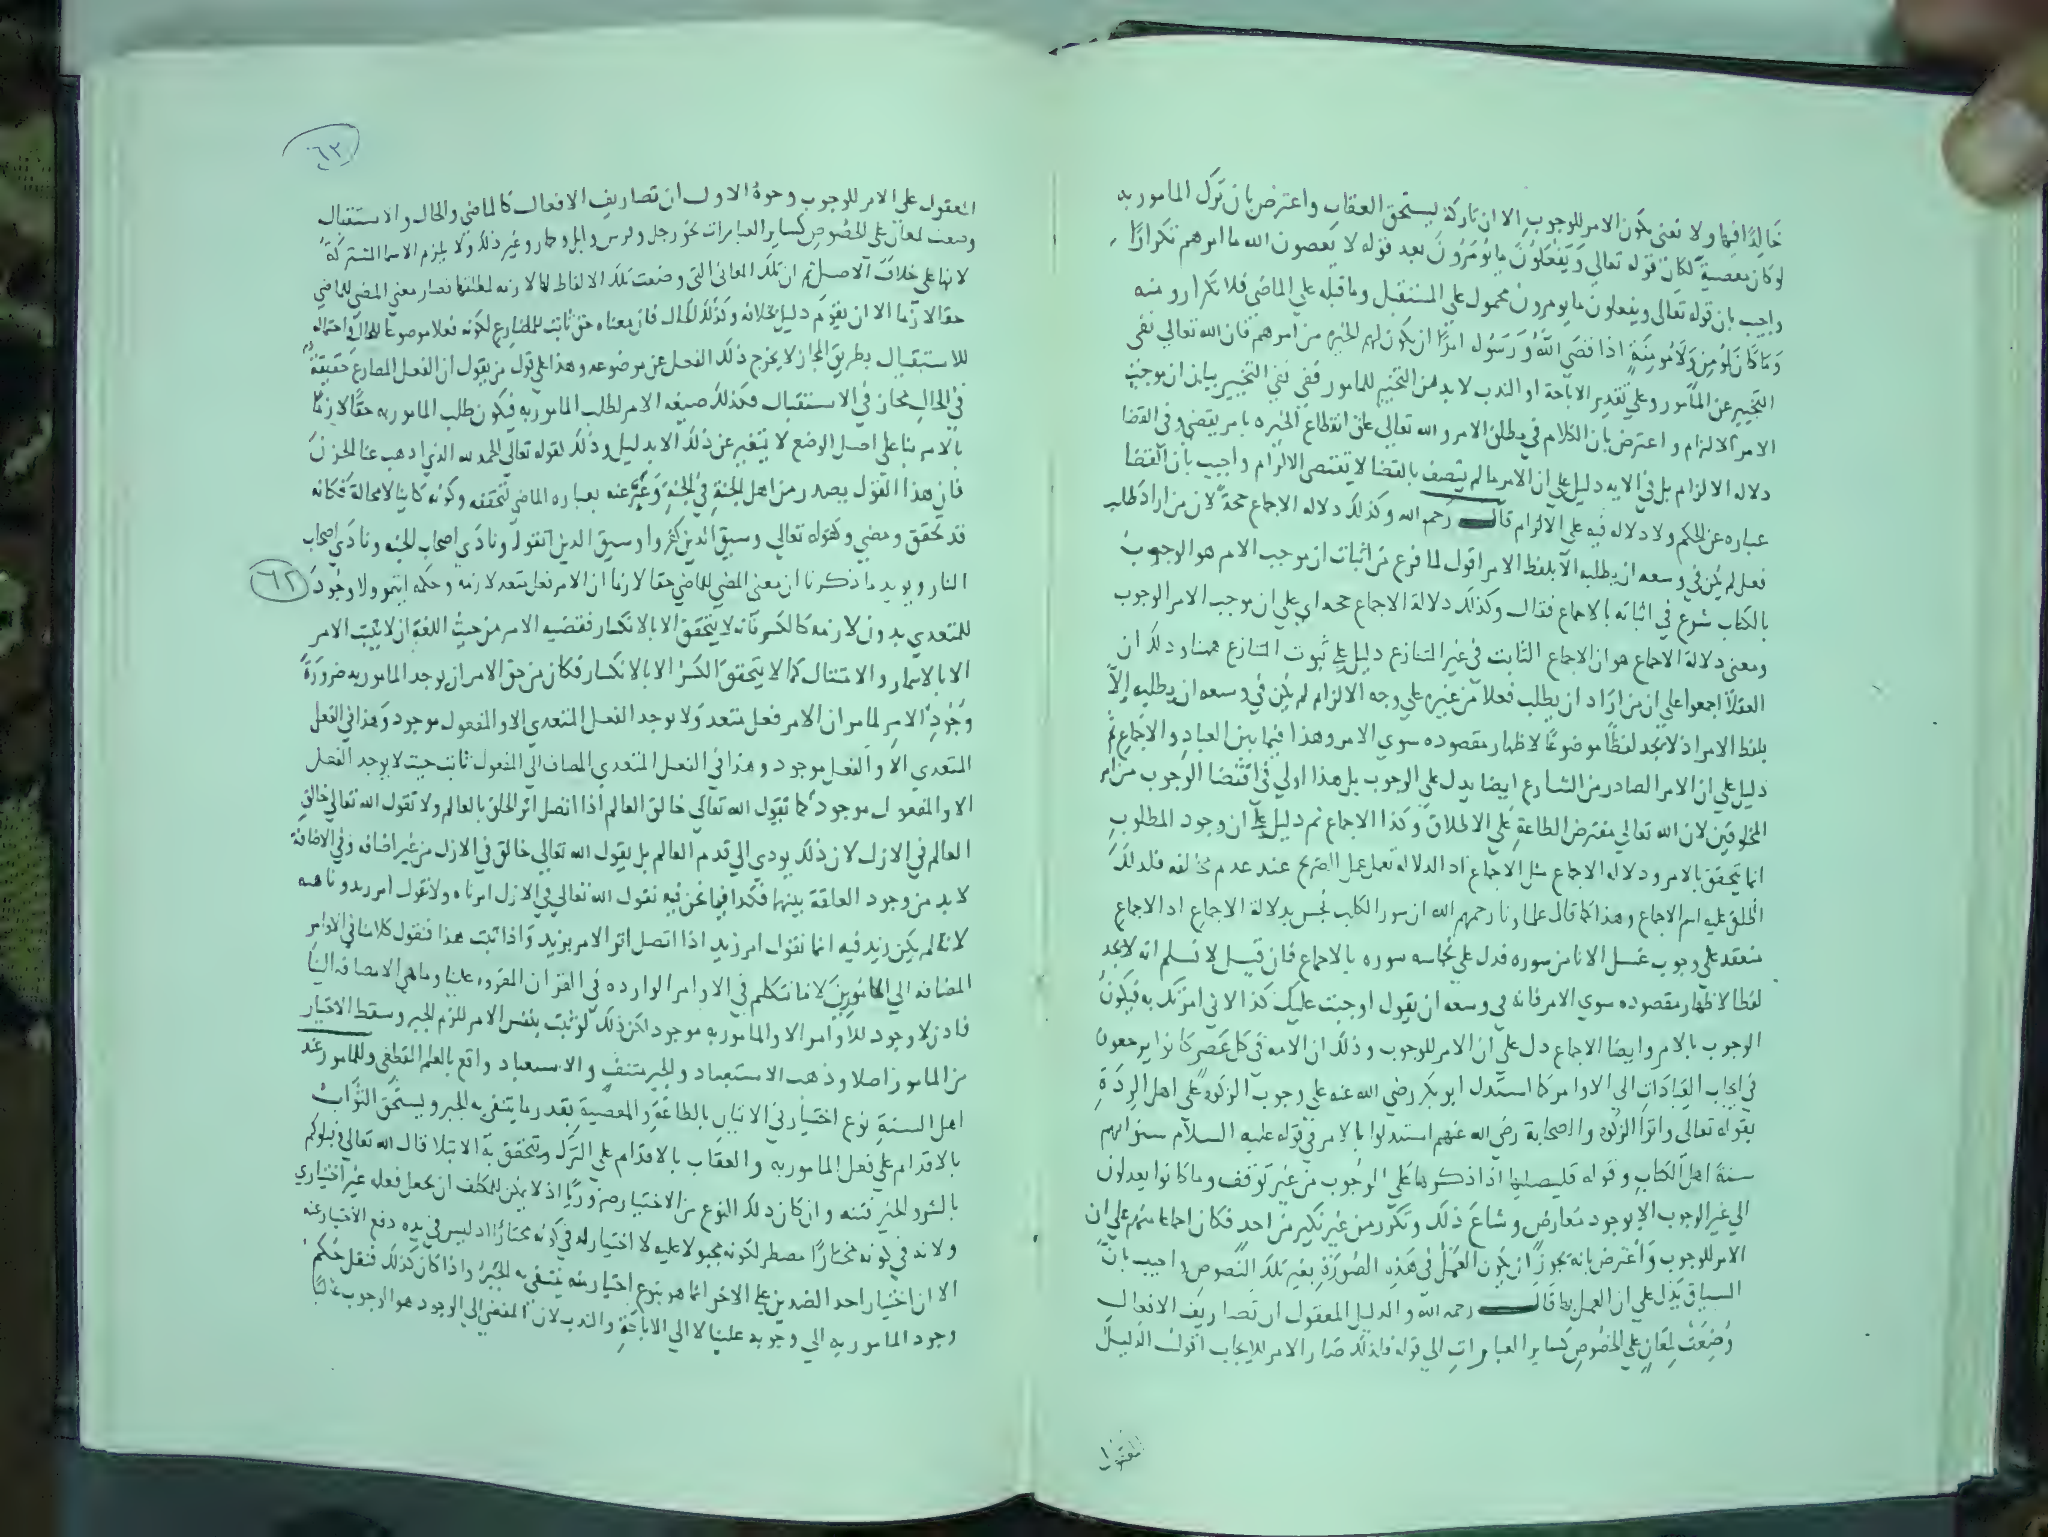 خَالِدًا فيها ولا نعني بكون الامر للوجوب الا ان تاركه يستحق العقاب واعترض بان ترك المامور به
لو كان معصية لكان قوله تعالي وَيَفْعَلُونَ ما يُؤمَرُونَ بعد قوله لا يعصون الله ما امرهم تكرارًا
واجيب بان قوله تعالى ويفعلون ما يومرون محمول على المستقبل وما قبله علي الماضي فلا تكرار ومنه
وَمَا كَانَ لِمُؤمِنٍ وَلَا مُومِنَةٍ اذا قضَي اللهُ وَرَسُوله امرًا ان يكون لهم الخيرة من امرهم فان الله تعالي نفى
التخيير عن المأمور وعلي تقدير الاباحة او الندب لا بد من التخيير للمامور ففى نفي التخيير بيان ان موجب
الامر الالزام واعترض بان الكلام في مطلق الامر والله تعالي علق انقطاع الخيره بامر يقضى وفي القضا
دلاله الالزام بل في الايه دليل علي ان الامر ما لم يتصف بالقضا لا يقتضي الالزام واجيب بان القضا
عباره عن الحكم ولا دلاله فيه على الالزام قال رحمه الله وكذلك دلاله الاجماع حجة لان من اراد طلب
فعل لم يكن في وسعه ان يطلبه الا بلفظ الامر اقول لما فرغ من اثبات ان موجب الامر هو الوجوب
بالكتاب شرع في اثباته بالاجماع فقال وكذلك دلالة الاجماع حجه اي علي ان موجب الامر الوجوب
ومعنى دلالة الاجماع هو ان الاجماع الثابت في غير المتنازع دليل علي ثبوت المتنازع ههنا وذلك ان
العقلا اجمعوا علي ان من اراد ان يطلب فعلا من غيره علي وجه الالزام لم يكن في وسعه ان يطلبه إلا
بلفظ الامر اذ لا يجد لفظًا موضوعًا لاظهار مقصوده سوي الامر وهذا فيما بين العباد والاجماع ثم
دليل علي ان الامر الصادر من الشارع ايضا يدل علي الوجوب بل هذا اولي في اقتضا الوجوب من امر
المخلوقين لان الله تعالي مفترض الطاعة علي الاطلاق وكذا الاجماع ثم دليل علي ان وجود المطلوب
انما يتحقق بالامر ودلاله الاجماع مثل الاجماع اذ الدلاله تعمل عمل الصريح عند عدم مخالفه فلذلك
اطلق عليه اسم الاجماع وهذا كما قال علماونا رحمهم الله ان سور الكلب نجس بدلالة الاجماع اذ الاجماع
منعقد علي وجوب غسل الانا من سوره فدل علي نجاسه سوره بالاجماع فان قيل لا نسلم انه لا يجد
لفظا لاظهار مقصوده سوي الامر فانه في وسعه ان يقول اوجبت عليك كذا الاني امرتك به فيكون
الوجوب بالامر وايضا الاجماع دل علي ان الامر للوجوب وذلك ان الامه في كل عصر كانوا يرجعون
في ايجاب العبادات الي الاوامر كما استدل ابو بكر رضي الله عنه علي وجوب الزكوة علي اهل الردة
بقوله تعالي واتوا الزكوة والصحابة رضي الله عنهم استدلوا بالامر في قوله عليه السلام سنوا بهم
سنة اهل الكتاب وقوله فليصلها اذا ذكرها علي الوجوب من غير توقف وما كانوا يعدلون
الي غير الوجوب الا بوجود معارض وشاع ذلك وتكرر من غير نكير من احد فكان اجماعا منهم علي ان
الامر للوجوب وأعترض بانه يجوز ان يكون العمل في هذه الصورة بغير تلك النصوص واجيب بان
السياق يدل علي ان العمل بها قال رحمه الله والدليل المعقول ان تصاريف الافعال
وُضِعَتْ لِمَعَانٍ علي الخُصُوصِ كساير العبارات الي قوله فلذلك صار الامر للايجاب اقول الدليل
المعقول
٦٢
المعقول على الامر للوجوب وجوهُ الاول ان تصاريف الافعال كالماضي والحال والاستقبال
وضعت لمعان علي الخصوص كساير العبارات نحو رجل وفرس وابل وحمار وغير ذلك ولا يلزم الاسما المشتركة
لانها على خلاف الاصل ثم ان تلك المعاني التي وضعت تلك الالفاظ لها لازمه لمطلقها فصار معني المضي للماضي
حقا لازما الا ان يقوم دليل بخلافه وكذلك الحال فان معناه حق ثابت للمضارع لكونه فعلا موضوعا للحال واحتماله
للاستقبال بطريق المجاز لا يخرج ذلك الفعل عن موضوعه وهذا علي قول من يقول ان الفعل المضارع حقيقة
في الحال مجاز في الاستقبال فكذلك صيغه الامر لطلب المامور به فيكون طلب المامور به حقًا لازمًا
بالامر بنا علي اصل الوضع لا يتغير عن ذلك الا بدليل وذلك لقوله تعالي الحمد لله الذي اذهب عنا الحزن
فان هذا القول يصدر من اهل الجنة في الجنة وَعُبِّر عنه بعباره الماضي لتحققه وكونه كاينا لا محالة فكانه
قد تحقق ومضي وكقوله تعالي وسيق الذين كفروا وسيق الذين اتقوا ونادَي اصحاب الجنه ونادَي اصحاب
النار ويويد ما ذكرنا ان معنى المضي للماضي حقا لازما ان الامر فعل متعد لازمه وحكمه ايتمر ولا وجود
٦٢
للمتعدي بدون لازمه كالكسر فانه لا يتحقق الا بالانكسار فقضيه الامر من حيث اللغة ان لا يثبت الامر
الا بالايتمار والامتثال كما لا يتحقق الكسر الا بالانكسار فكان من حق الامر ان يوجد المامور به ضرورة
وجُودِ الامر لما مر ان الامر فعل متعد ولا يوجد الفعل المتعدي الا والمفعول موجود وهذا في الفعل
المتعدي الا والفعل موجود وهذا في الفعل المتعدي المضاف الي المفعول ثابت حيث لا يوجد الفعل
الا والمفعول موجود كما تقول الله تعالي خالق العالم اذا اتصل اثر الخلق بالعالم ولا تقول الله تعالي خالق
العالم في الازل لان ذلك يودي الي قدم العالم بل يقول الله تعالي خالق في الازل من غير اضافه وفي الاضافة
لا بد من وجود العلاقة بينهما فكذا فيما نحن فيه نقول الله تعالي في الازل امر ناه ولا نقول امر زيد وناهيه
لانه لم يكن زيد فيه انما نقول امر زيد اذا اتصل اثر الامر بزيد واذا ثبت هذا فنقول كلامنا في الاوامر
المضافه الي المامورين لاننا نتكلم في الاوامر الوارده في القران المقروه علينا وما هي الا مضافه الينا
فاذن لا وجود للاوامر الا والمامور به موجود لكن ذلك لو ثبت بنفس الامر للزم الجبر وسقط الاختيار
من المامور اصلا وذهب الاستعباد والجبر منتفٍ والاستعباد واقع بالعلم القطعي وللمامور عند
اهل السنة نوع اختيار في الاتيان بالطاعة والمعصية بقدر ما ينتفي به الجبر ويستحق الثواب
بالاقدام علي فعل المامور به والعقاب بالاقدام علي الترك ويتحقق به الابتلا قال الله تعالي ونبلوكم
بالشر والخير فتنه وان كان ذلك النوع من الاختيار ضروريا اذ لا يمكن للمكلف ان يجعل فعله غير اختياري
ولانه في كونه مختارًا مضطر لكونه مجبولا عليه لا اختيار له في كونه مختارًا اذ ليس في يده دفع الاختيار عنه
الا ان اختيار احد الضدين علي الاخر انما هو بنوع اختيار منه ينتفي به الجبر واذا كان كذلك فنقل حكم
وجود المامور به الي وجوبه علينا لا الي الاباحة والندب لان المفضي الي الوجود هو الوجوب غالبًا